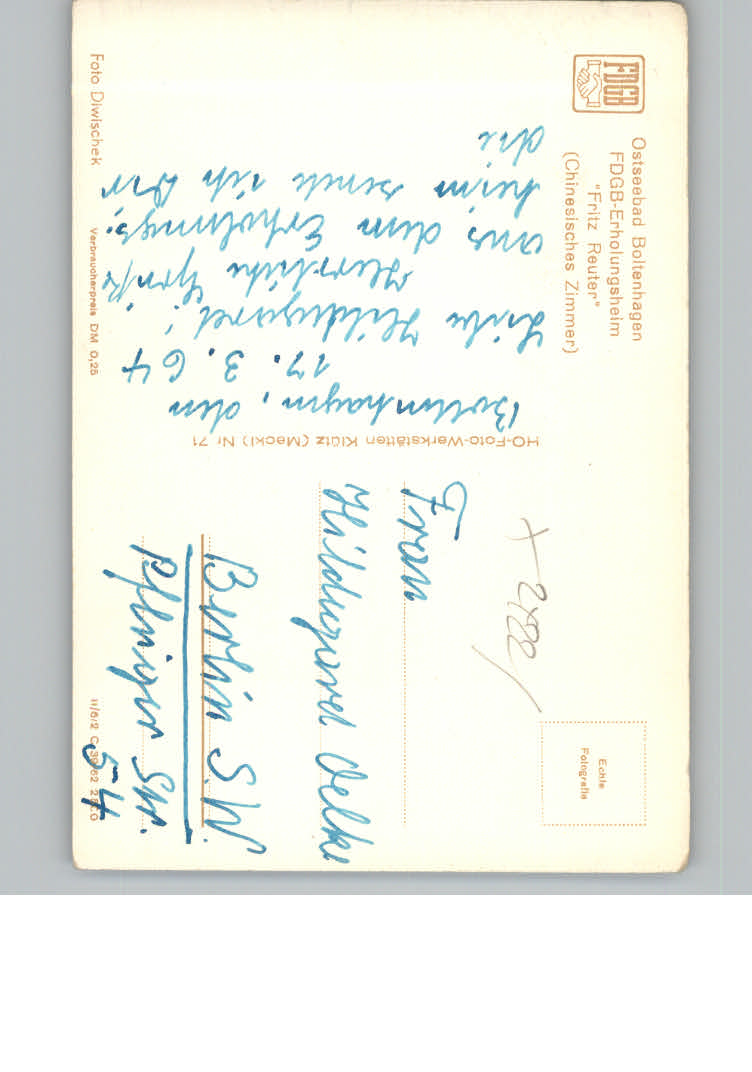 FDGB
Ostseebad Boltenhagen
FDGB-Erholungsheim
"Fritz Reuter"
(Chinesisches Zimmer)
Boltenhagen, den
17. 3. 64
Liebe Hildegard!
Herzliche Grüße
aus dem Erholungs-
heim sende ich Dir
die
Foto Diwischek
Verbraucherpreis DM 0,25
HO-Foto-Werkstätten Klütz (Meckl) Nr 71
Echte
Fotografie
Frau
Hildegard
Berlin S.W.
Str.
54
II/6/2